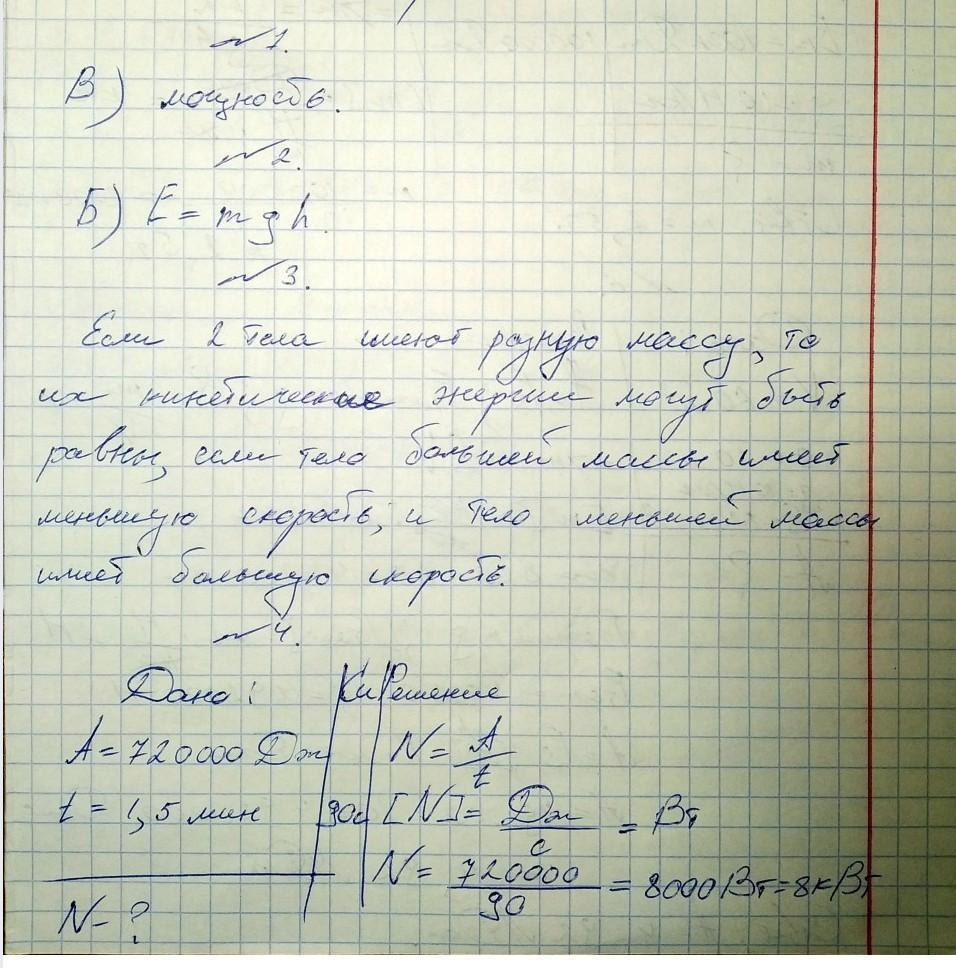 №1.
В) мощность.
№2.
Б) E = mgh.
№3.
Если 2 тела имеют разную массу, то
их кинетические энергии могут быть
равны, если тело большей массы имеет
меньшую скорость, и тело меньшей массы
имеет большую скорость.
№4.
Дано: Си Решение
A = 720000 Дж N = A/t
t = 1,5 мин 90с [N] = Дж/с = Вт
N = 720000/90 = 8000 Вт = 8кВт
N - ?